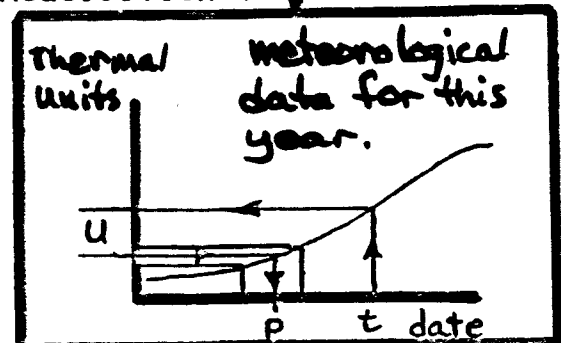 Thermal
units
meteorological
data for this
year.
u
p
t
date